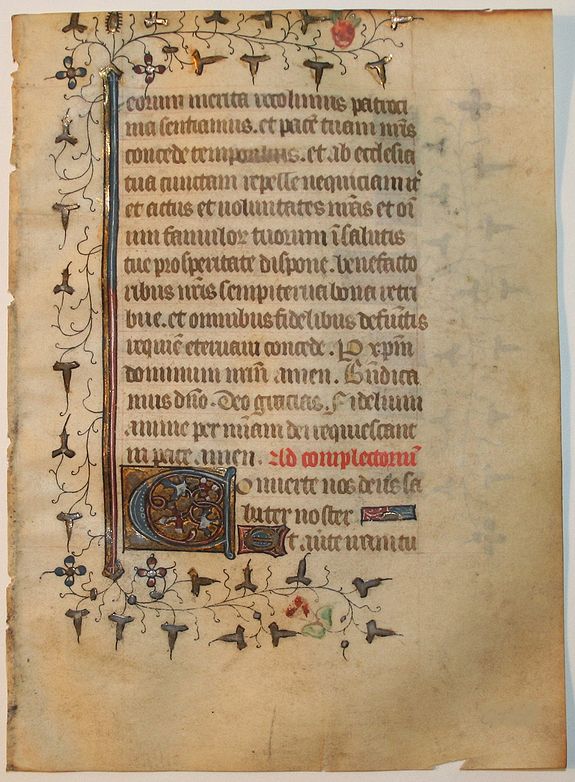 eorum merita recolimus patroci
nia sentiamus. et pacē tuam nr̄is
concede temporibus. et ab ecclesia
tua cunctam repelle nequiciam it̄
et actus et uoluntates nr̄as et oı̄
um famulor tuorum ī salutis
tue prosperitate dispone. benefacto
ribus nr̄is sempiterna bona retri
bue. et omnibus fidelibus defunctis
requiē eternam concede. P xp̄m
dominum nr̄m̄ amen. Bn̄dica
mus dn̄o. Deo gracias. Fidelium
anime per mı̄am dei requiescant
in pace amen. Ad complectoriū
Conuerte nos deus sa
lutaris noster
Et auerte iram tu